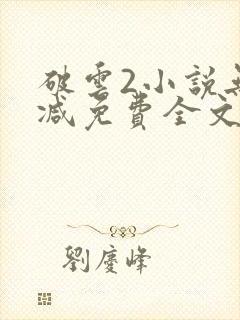 破雲2小說無
減免費全文
劉慶峰